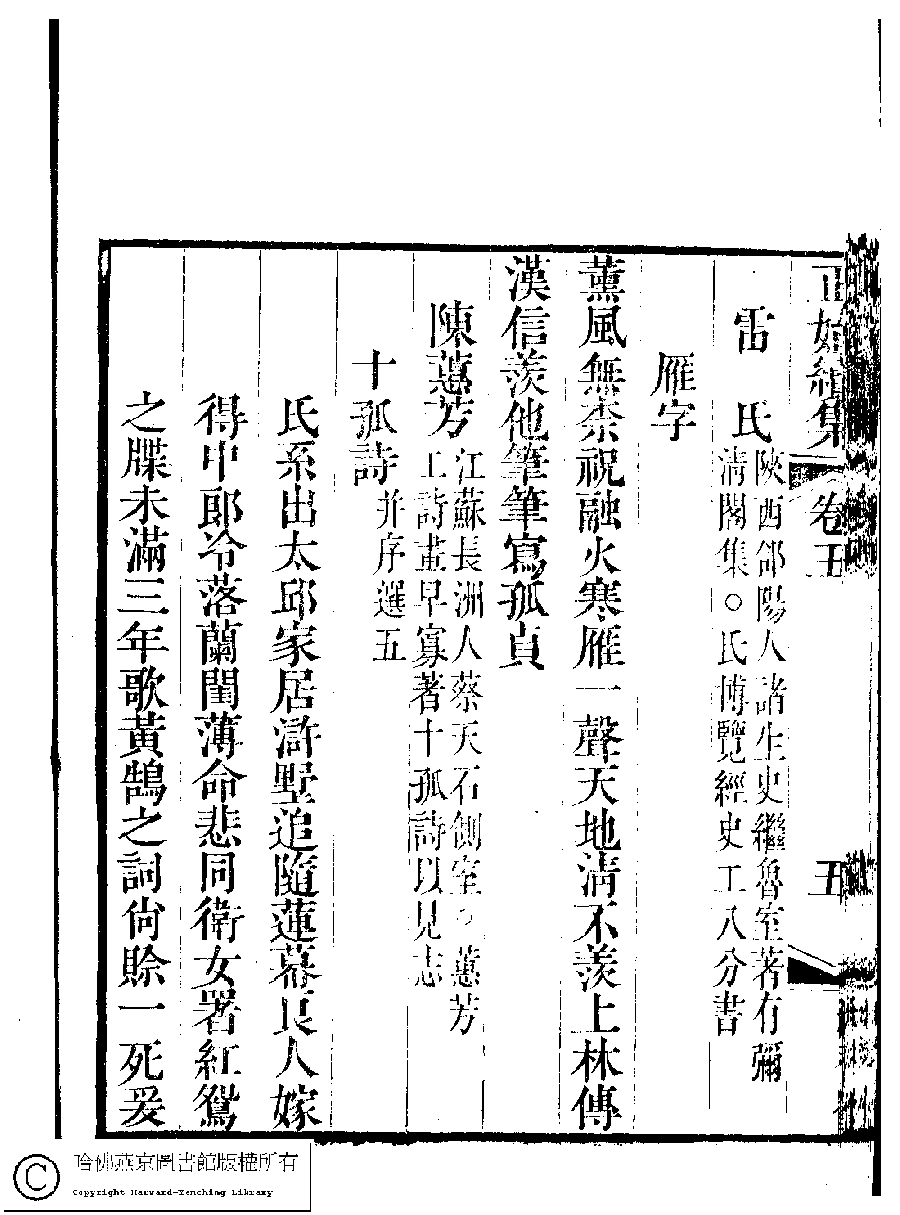 正始續集 卷五 五
雷 氏 陝西郃陽人諸生史繼魯室著有彌
清閣集○氏博覽經史工八分書
雁字
薰風無柰祝融火寒雁一聲天地清不羨上林傳
漢信羨他筆筆寫孤貞
陳蕙芳 江蘇長洲人蔡天石側室○蕙芳
工詩畫早寡著十孤詩以見志
十孤詩 并序選五
氏系出太邱家居滸墅追隨蓮幕良人嫁
得中郎冷落蘭閨薄命悲同衛女署紅鴛
之牒未滿三年歌黃鵠之詞尙賒一死爰
哈佛燕京圖書館版權所有
Copyright Harvard-Yenching Library